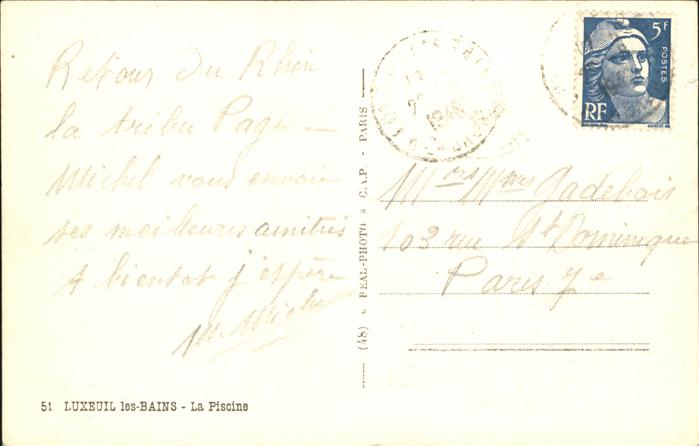 Retour du Rhin
la tribu Page –
Michel vous envoie
ses meilleures amitiés
A bientot j'espère
M. Michel
51 LUXEUIL les-BAINS - La Piscine
(48) REAL-PHOTO C.A.P. - PARIS
1948
5F
POSTES
RF
Mrs Mmes Gadebois
103 rue St Dominique
Paris 7e